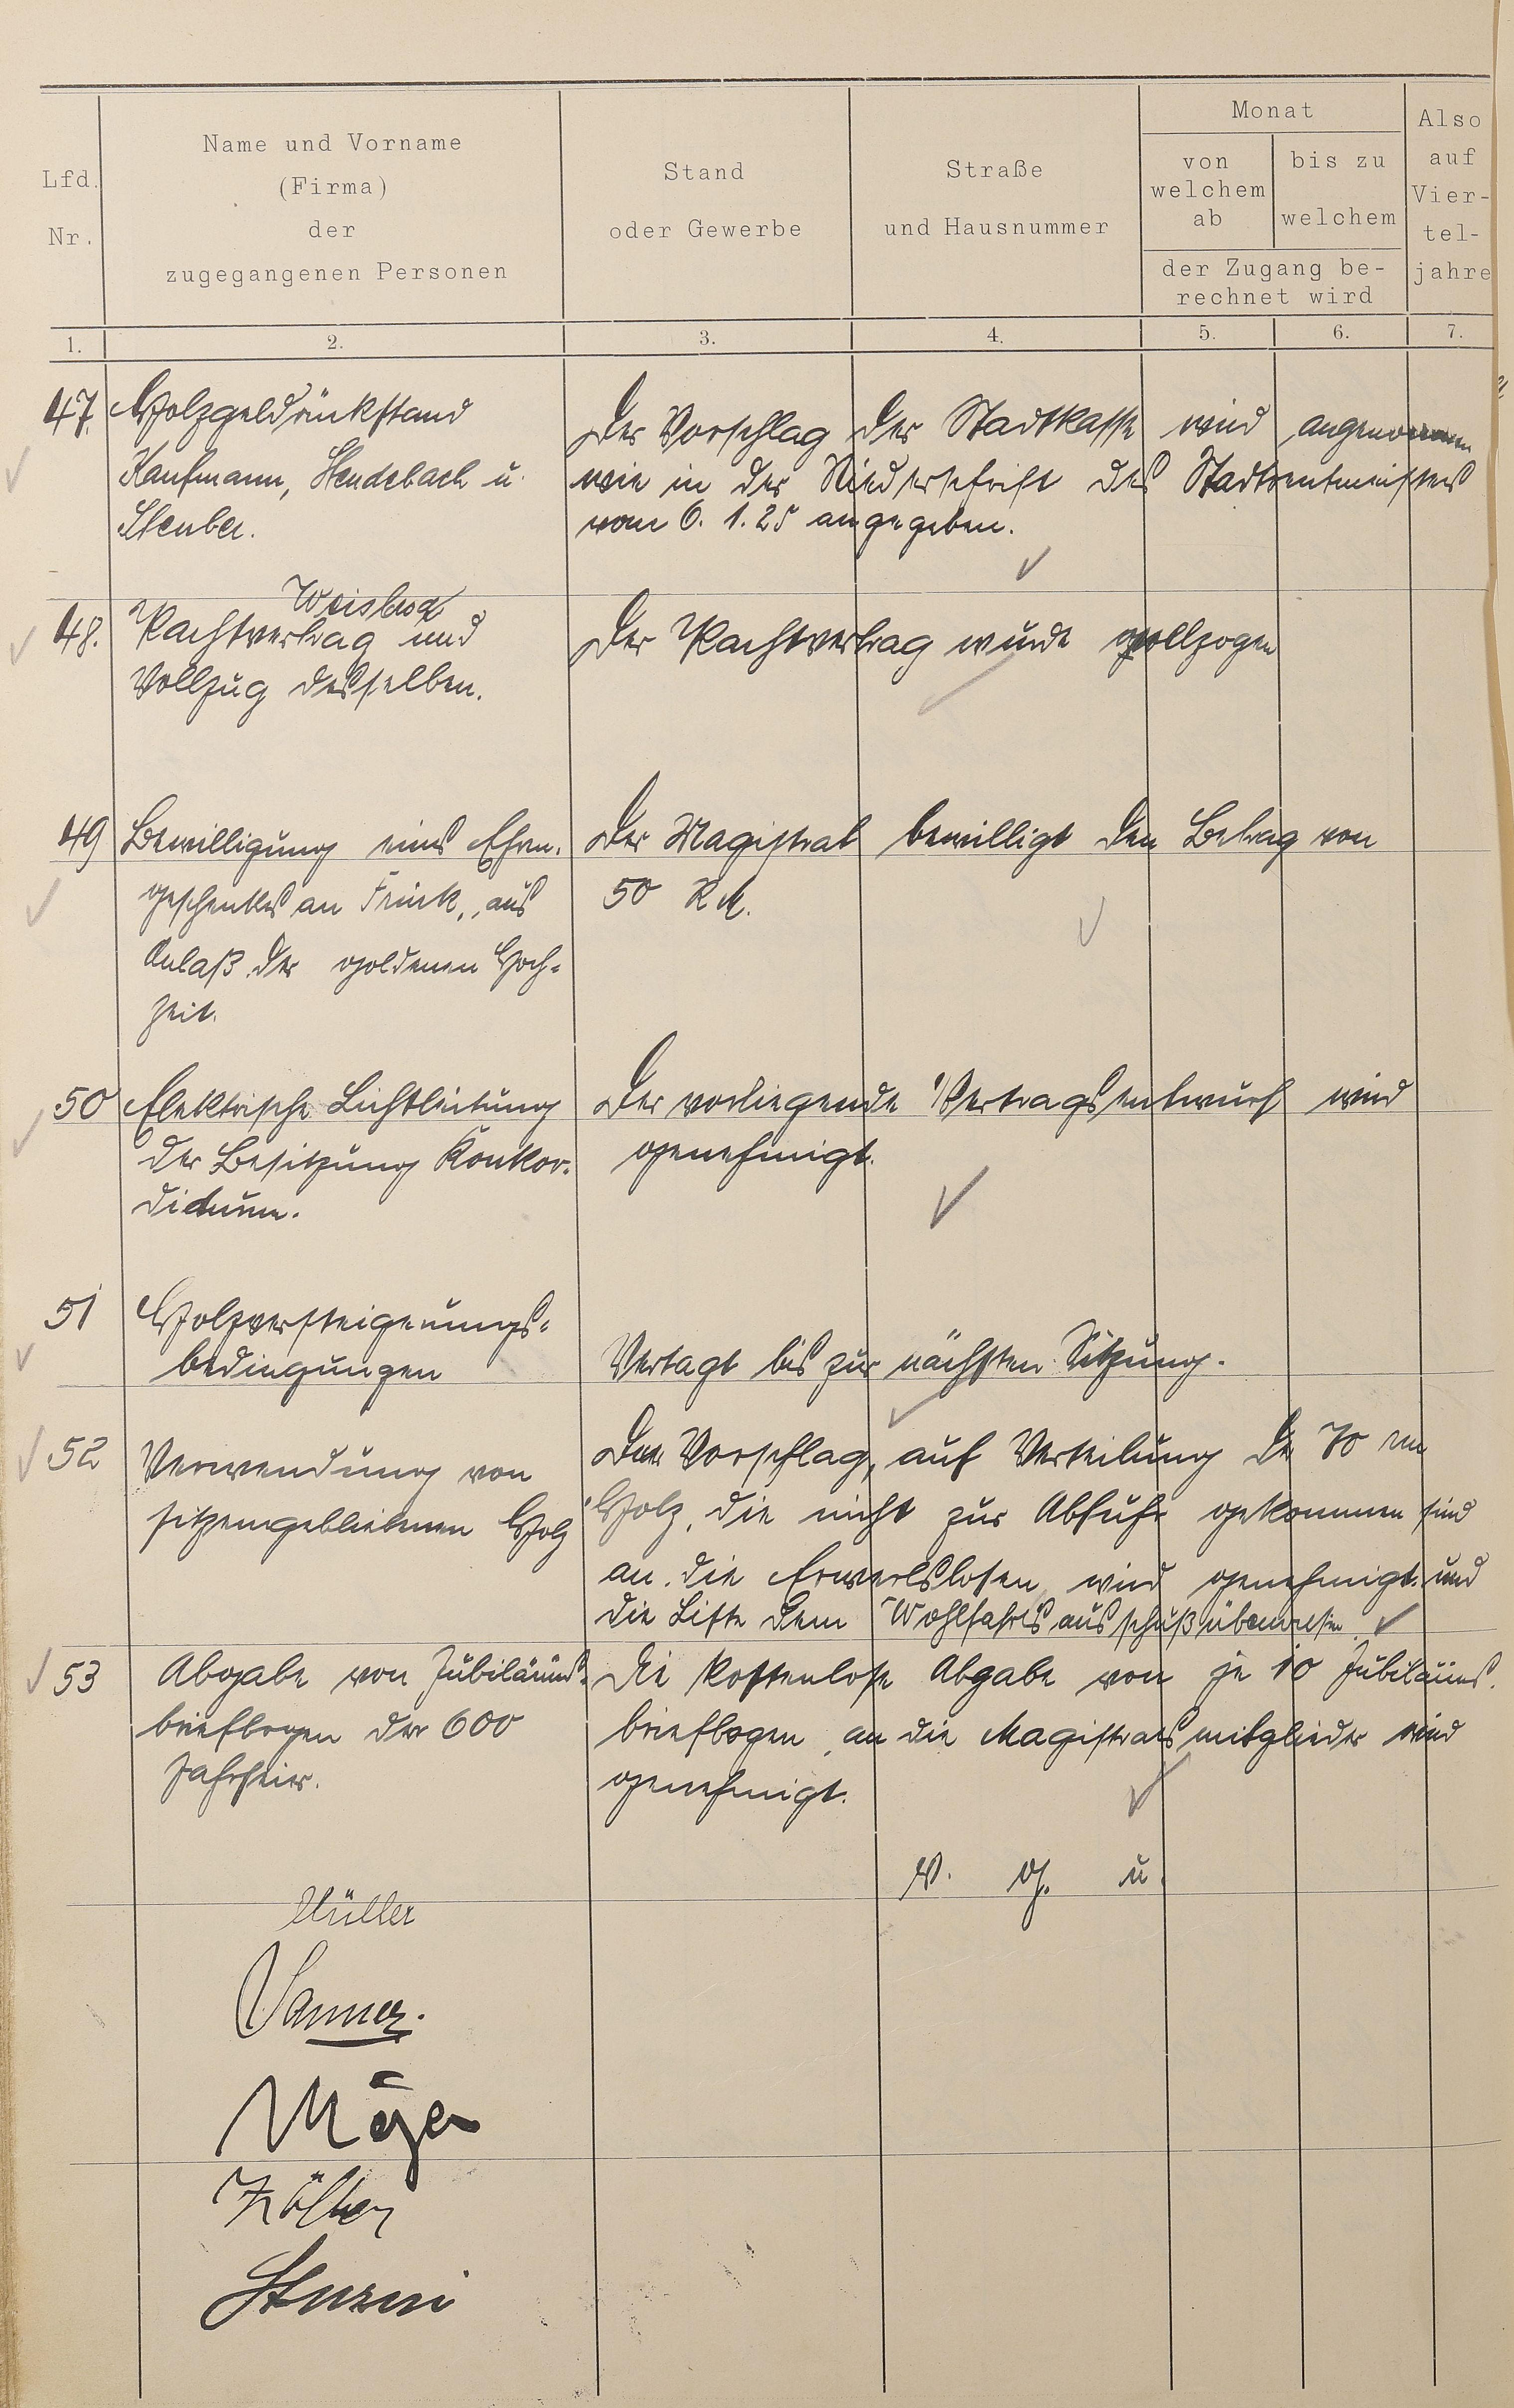 Monat
Also
Name und Vorname
auf
Lfd.
(Firma)
Stand
Straße
von
bis zu
Vier-
welchem
Nr.
der
oder Gewerbe
und Hausnummer
ab
welchem
tel-
zugegangenen Personen
der Zugang be-
jahre
rechnet wird
1.
2.
3.
4.
5.
6.
7.
47. Holzgeldrückstand
Kaufmann, Hendebach u.
Steuber.
Der Vorschlag der Stadtkasse wird angenommen
wie in der Niederschrift des Stadtrentmeisters
vom 6. 1. 25 angegeben.
Weisbrod
48. Pachtvertrag und
Vollzug desselben.
Der Pachtvertrag wurde vollzogen
49 Bewilligung eines Ehren-
geschenkes an Frink, aus
Anlaß der goldenen Hoch-
zeit.
Der Magistrat bewilligt den Betrag von
50 RM.
50 Elektrische Lichtleitung
der Besitzung Konkor-
didum.
Der vorliegende Vertragsentwurf wird
genehmigt.
51 Holzversteigerungs-
bedingungen
Vertagt bis zur nächsten Sitzung.
52 Verwendung von
sitzengebliebenem Holz
Der Vorschlag, auf Verteilung der 70 rm
Holz, die nicht zur Abfuhr gekommen sind
an die Erwerbslosen wird genehmigt und
die Liste dem Wohlfahrtsausschuß überwiesen.
53 Abgabe von Jubiläums-
briefbogen der 600
Jahrfeier.
Die kostenlose Abgabe von je 10 Jubiläums-
briefbogen an die Magistratsmitglieder wird
genehmigt.
v. g. u.
Müller
Sturm